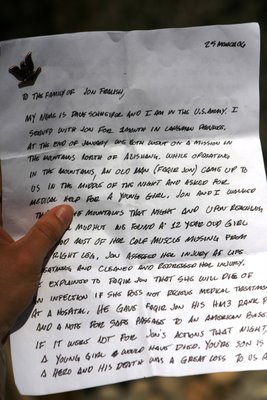 25 MARCH 06
TO THE FAMILY OF JON FRALISH,
MY NAME IS DAVE AND I AM IN THE U.S. ARMY. I
SERVED WITH JON FOR 1 MONTH IN LAGHMAN PROVINCE.
AT THE END OF JANUARY WE BOTH WENT ON A MISSION IN
THE MOUNTAINS NORTH OF ALISHANG. WHILE OPERATING
IN THE MOUNTAINS, AN OLD MAN (FAQIR JON) CAME UP TO
US IN THE MIDDLE OF THE NIGHT AND ASKED FOR
MEDICAL HELP FOR A YOUNG GIRL. JON AND I WALKED
MOUNTAINS THAT NIGHT AND UPON REACHING
WE FOUND A 12 YEAR OLD GIRL
MOST OF HER CALF MUSCLE MISSING FROM
RIGHT LEG, JON ASSESSED HER INJURY AS LIFE
AND CLEANED AND REDRESSED HER INJURY.
EXPLAINED TO FAQIR JON THAT SHE WILL DIE OF
AN INFECTION IF SHE DOES NOT RECEIVE MEDICAL TREATMENT
AT A HOSPITAL. HE GAVE FAQIR JON HIS HM3 RANK
AND A NOTE FOR SAFE PASSAGE TO AN AMERICAN BASE.
IF IT WERE NOT FOR JON'S ACTIONS THAT NIGHT,
A YOUNG GIRL WOULD HAVE DIED. YOU'RE SON IS
A HERO AND HIS DEATH WAS A GREAT LOSS TO US A